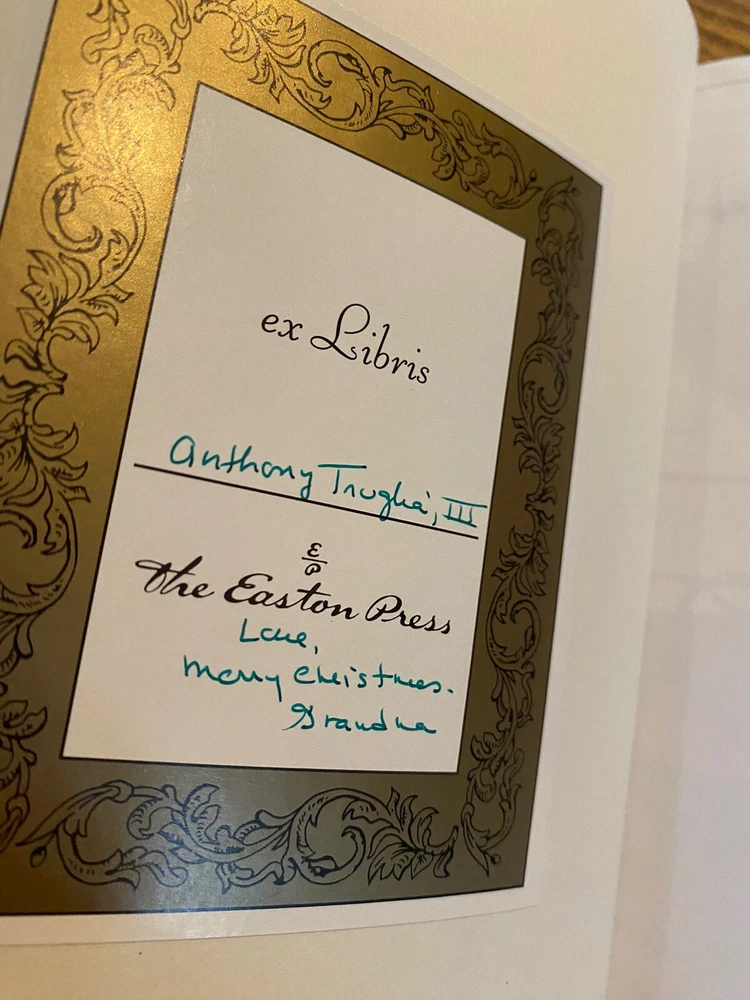 ex Libris
Anthony Truglia, III
E
P
The Easton Press
Love,
Merry Christmas.
Grandma